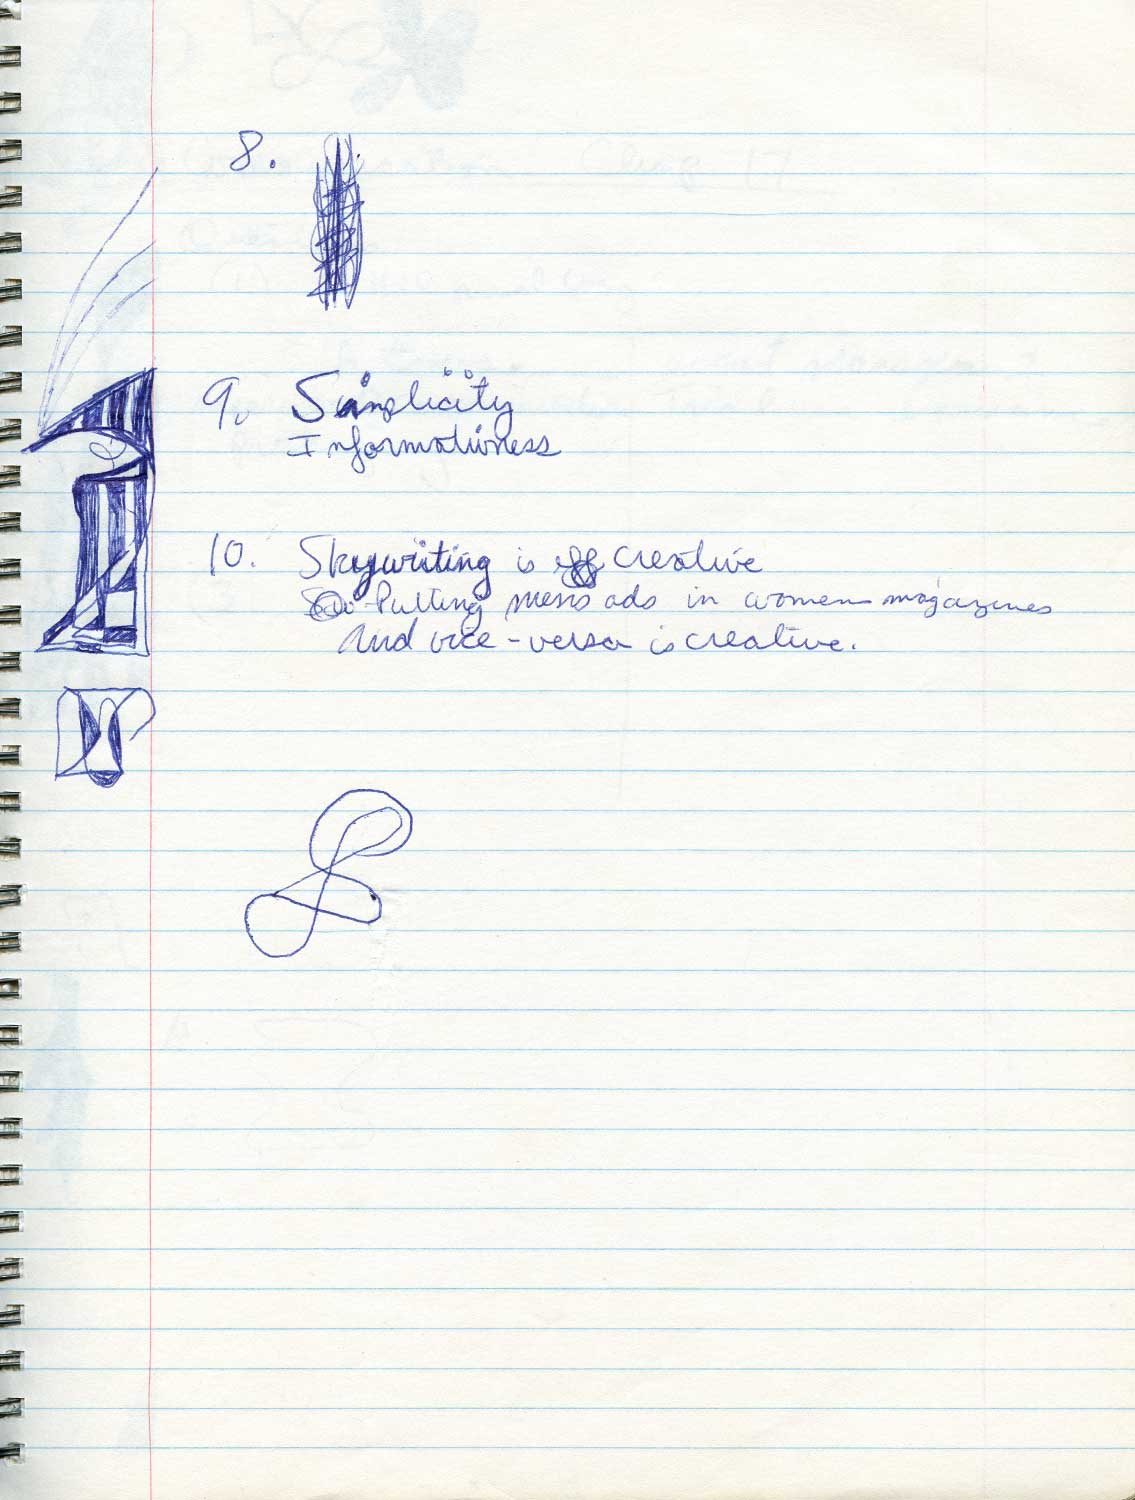 8.
9. Simplicity
Informativness
10. Skywriting is creative
Putting mens ads in women magazines
and vice-versa is creative.